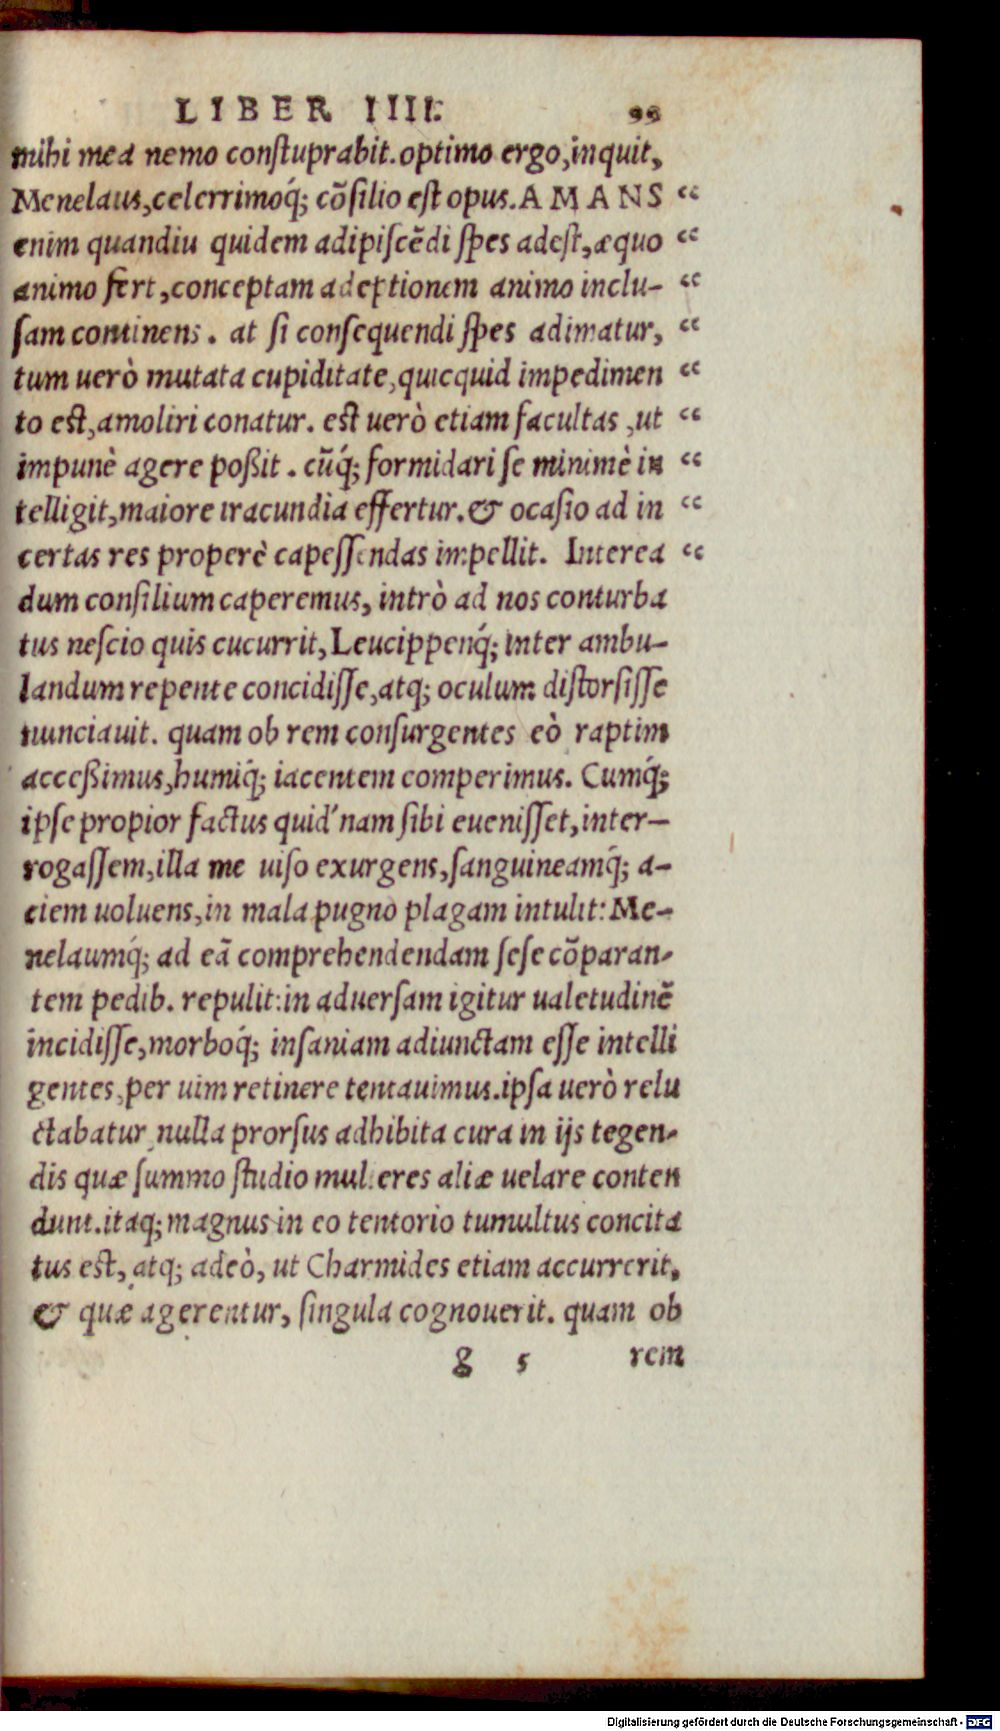 LIBER IIII. 99
mihi mea nemo conſtuprabit. optimo ergo, inquit,
Menelaus, celerrimoq́; cōſilio eſt opus. AMANS “
enim quandiu quidem adipiſcēdi ſpes adeſt, æquo “
animo fert, conceptam adeptionem animo inclu- “
ſam continens. at ſi conſequendi ſpes adimatur, “
tum uerò mutata cupiditate, quicquid impedimen “
to eſt, amoliri conatur. eſt uerò etiam facultas, ut “
impunè agere poßit. cūq́; formidari ſe minimè in “
telligit, maiore iracundia effertur. & ocaſio ad in “
certas res properè capeſſendas impellit. Interea “
dum conſilium caperemus, intrò ad nos conturba
tus neſcio quis cucurrit, Leucippenq́; inter ambu-
landum repente concidiſſe, atq; oculum diſtorſiſſe
nunciauit. quam ob rem conſurgentes eò raptim
acceßimus, humiq́; iacentem comperimus. Cumq́;
ipſe propior factus quid'nam ſibi eueniſſet, inter-
rogaſſem, illa me uiſo exurgens, ſanguineamq́; a-
ciem uoluens, in mala pugno plagam intulit: Me-
nelaumq́; ad eā comprehendendam ſeſe cōparan-
tem pedib. repulit: in aduerſam igitur ualetudinē
incidiſſe, morboq́; inſaniam adiunctam eſſe intelli
gentes, per uim retinere tentauimus. ipſa uerò relu
ctabatur, nulla prorſus adhibita cura in ijs tegen-
dis quæ ſummo ſtudio mulieres aliæ uelare conten
dunt. itaq; magnus in eo tentorio tumultus concita
tus eſt, atq; adeò, ut Charmides etiam accurrerit,
& quæ agerentur, ſingula cognouerit. quam ob
g 5 rem
Digitalisierung gefördert durch die Deutsche Forschungsgemeinschaft - DFG